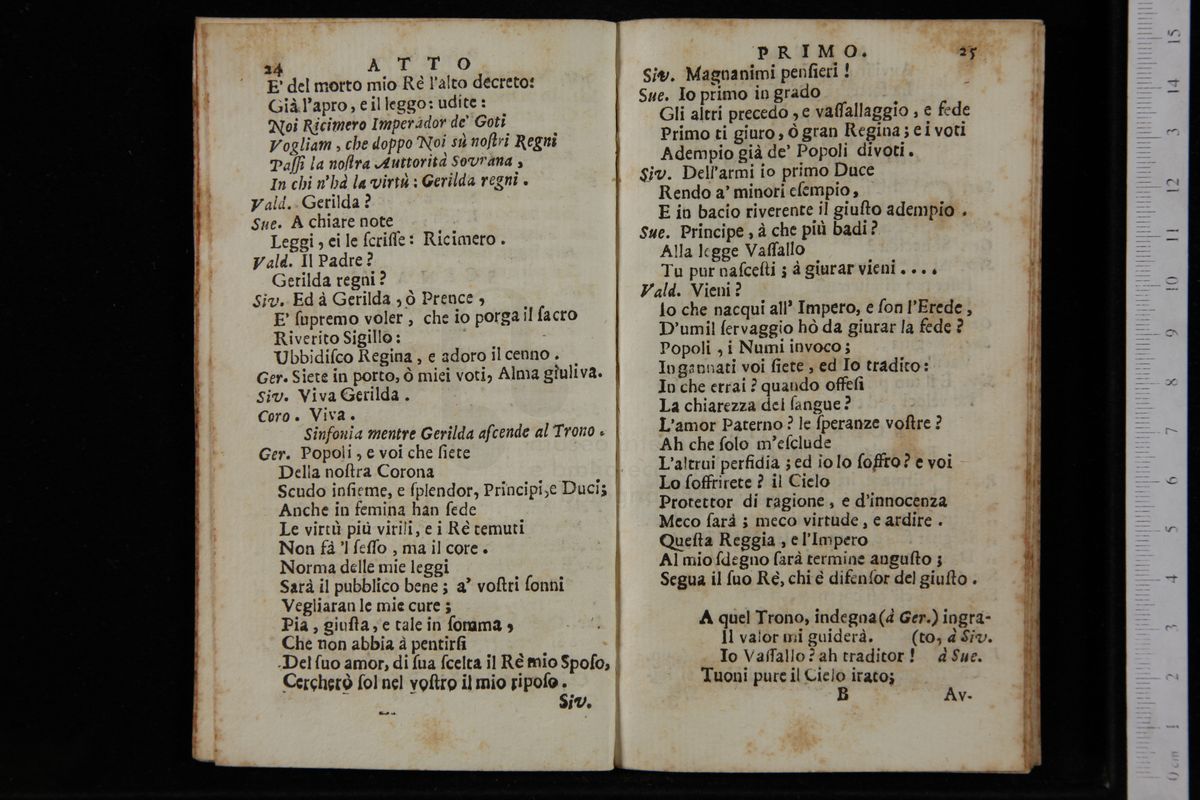 24 ATTO
E' del morto mio Rè l'alto decreto:
Già l'apro, e il leggo: udite:
Noi Ricimero Imperador de' Goti
Vogliam, che doppo Noi sù noſtri Regni
Paſſi la noſtra Auttorità Sovrana,
In chi n'hà la virtù: Gerilda regni.
Vald. Gerilda?
Sue. A chiare note
Leggi, ei le ſcriſſe: Ricimero.
Vald. Il Padre?
Gerilda regni?
Siv. Ed à Gerilda, ò Prence,
E' ſupremo voler, che io porga il ſacro
Riverito Sigillo:
Ubbidiſco Regina, e adoro il cenno.
Ger. Siete in porto, ò miei voti, Alma giuliva.
Siv. Viva Gerilda.
Coro. Viva.
Sinfonia mentre Gerilda aſcende al Trono.
Ger. Popoli, e voi che ſiete
Della noſtra Corona
Scudo inſieme, e ſplendor, Principi, e Duci;
Anche in femina han ſede
Le virtù più virili, e i Rè temuti
Non fà 'l ſeſſo, ma il core.
Norma delle mie leggi
Sarà il pubblico bene; a' voſtri ſonni
Vegliaran le mie cure;
Pia, giuſta, e tale in ſomma,
Che non abbia à pentirſi
Del ſuo amor, di ſua ſcelta il Rè mio Spoſo,
Cercherò ſol nel voſtro il mio ripoſo.
Siv.
PRIMO. 25
Siv. Magnanimi penſieri!
Sue. Io primo in grado
Gli altri precedo, e vaſſallaggio, e fede
Primo ti giuro, ò gran Regina; e i voti
Adempio già de' Popoli divoti.
Siv. Dell'armi io primo Duce
Rendo a' minori eſempio,
E in bacio riverente il giuſto adempio.
Sue. Principe, à che più badi?
Alla legge Vaſſallo
Tu pur naſceſti; à giurar vieni....
Vald. Vieni?
Io che nacqui all' Impero, e ſon l'Erede,
D'umil ſervaggio hò da giurar la fede?
Popoli, i Numi invoco;
Ingannati voi ſiete, ed Io tradito:
In che errai? quando offeſi
La chiarezza del ſangue?
L'amor Paterno? le ſperanze voſtre?
Ah che ſolo m'eſclude
L'altrui perfidia; ed io lo ſoffro? e voi
Lo ſoffrirete? il Cielo
Protettor di ragione, e d'innocenza
Meco ſarà; meco virtude, e ardire.
Queſta Reggia, e l'Impero
Al mio ſdegno ſarà termine anguſto;
Segua il ſuo Rè, chi è difenſor del giuſto.
A quel Trono, indegna (à Ger.) ingra-
Il valor mi guiderà. (to, à Siv.
Io Vaſſallo? ah traditor! à Sue.
Tuoni pure il Cielo irato;
B Av-